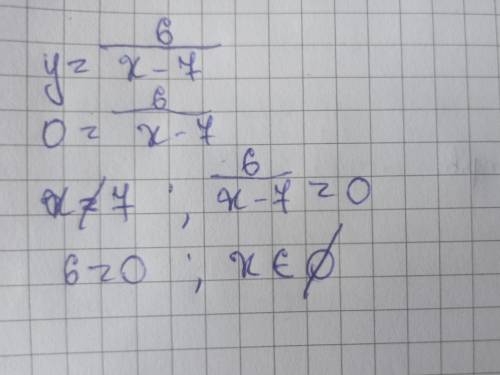 y = 6/(x - 7)
0 = 6/(x - 7)
x ≠ 7 ; 6/(x - 7) = 0
6 = 0 ; x ∈ ∅